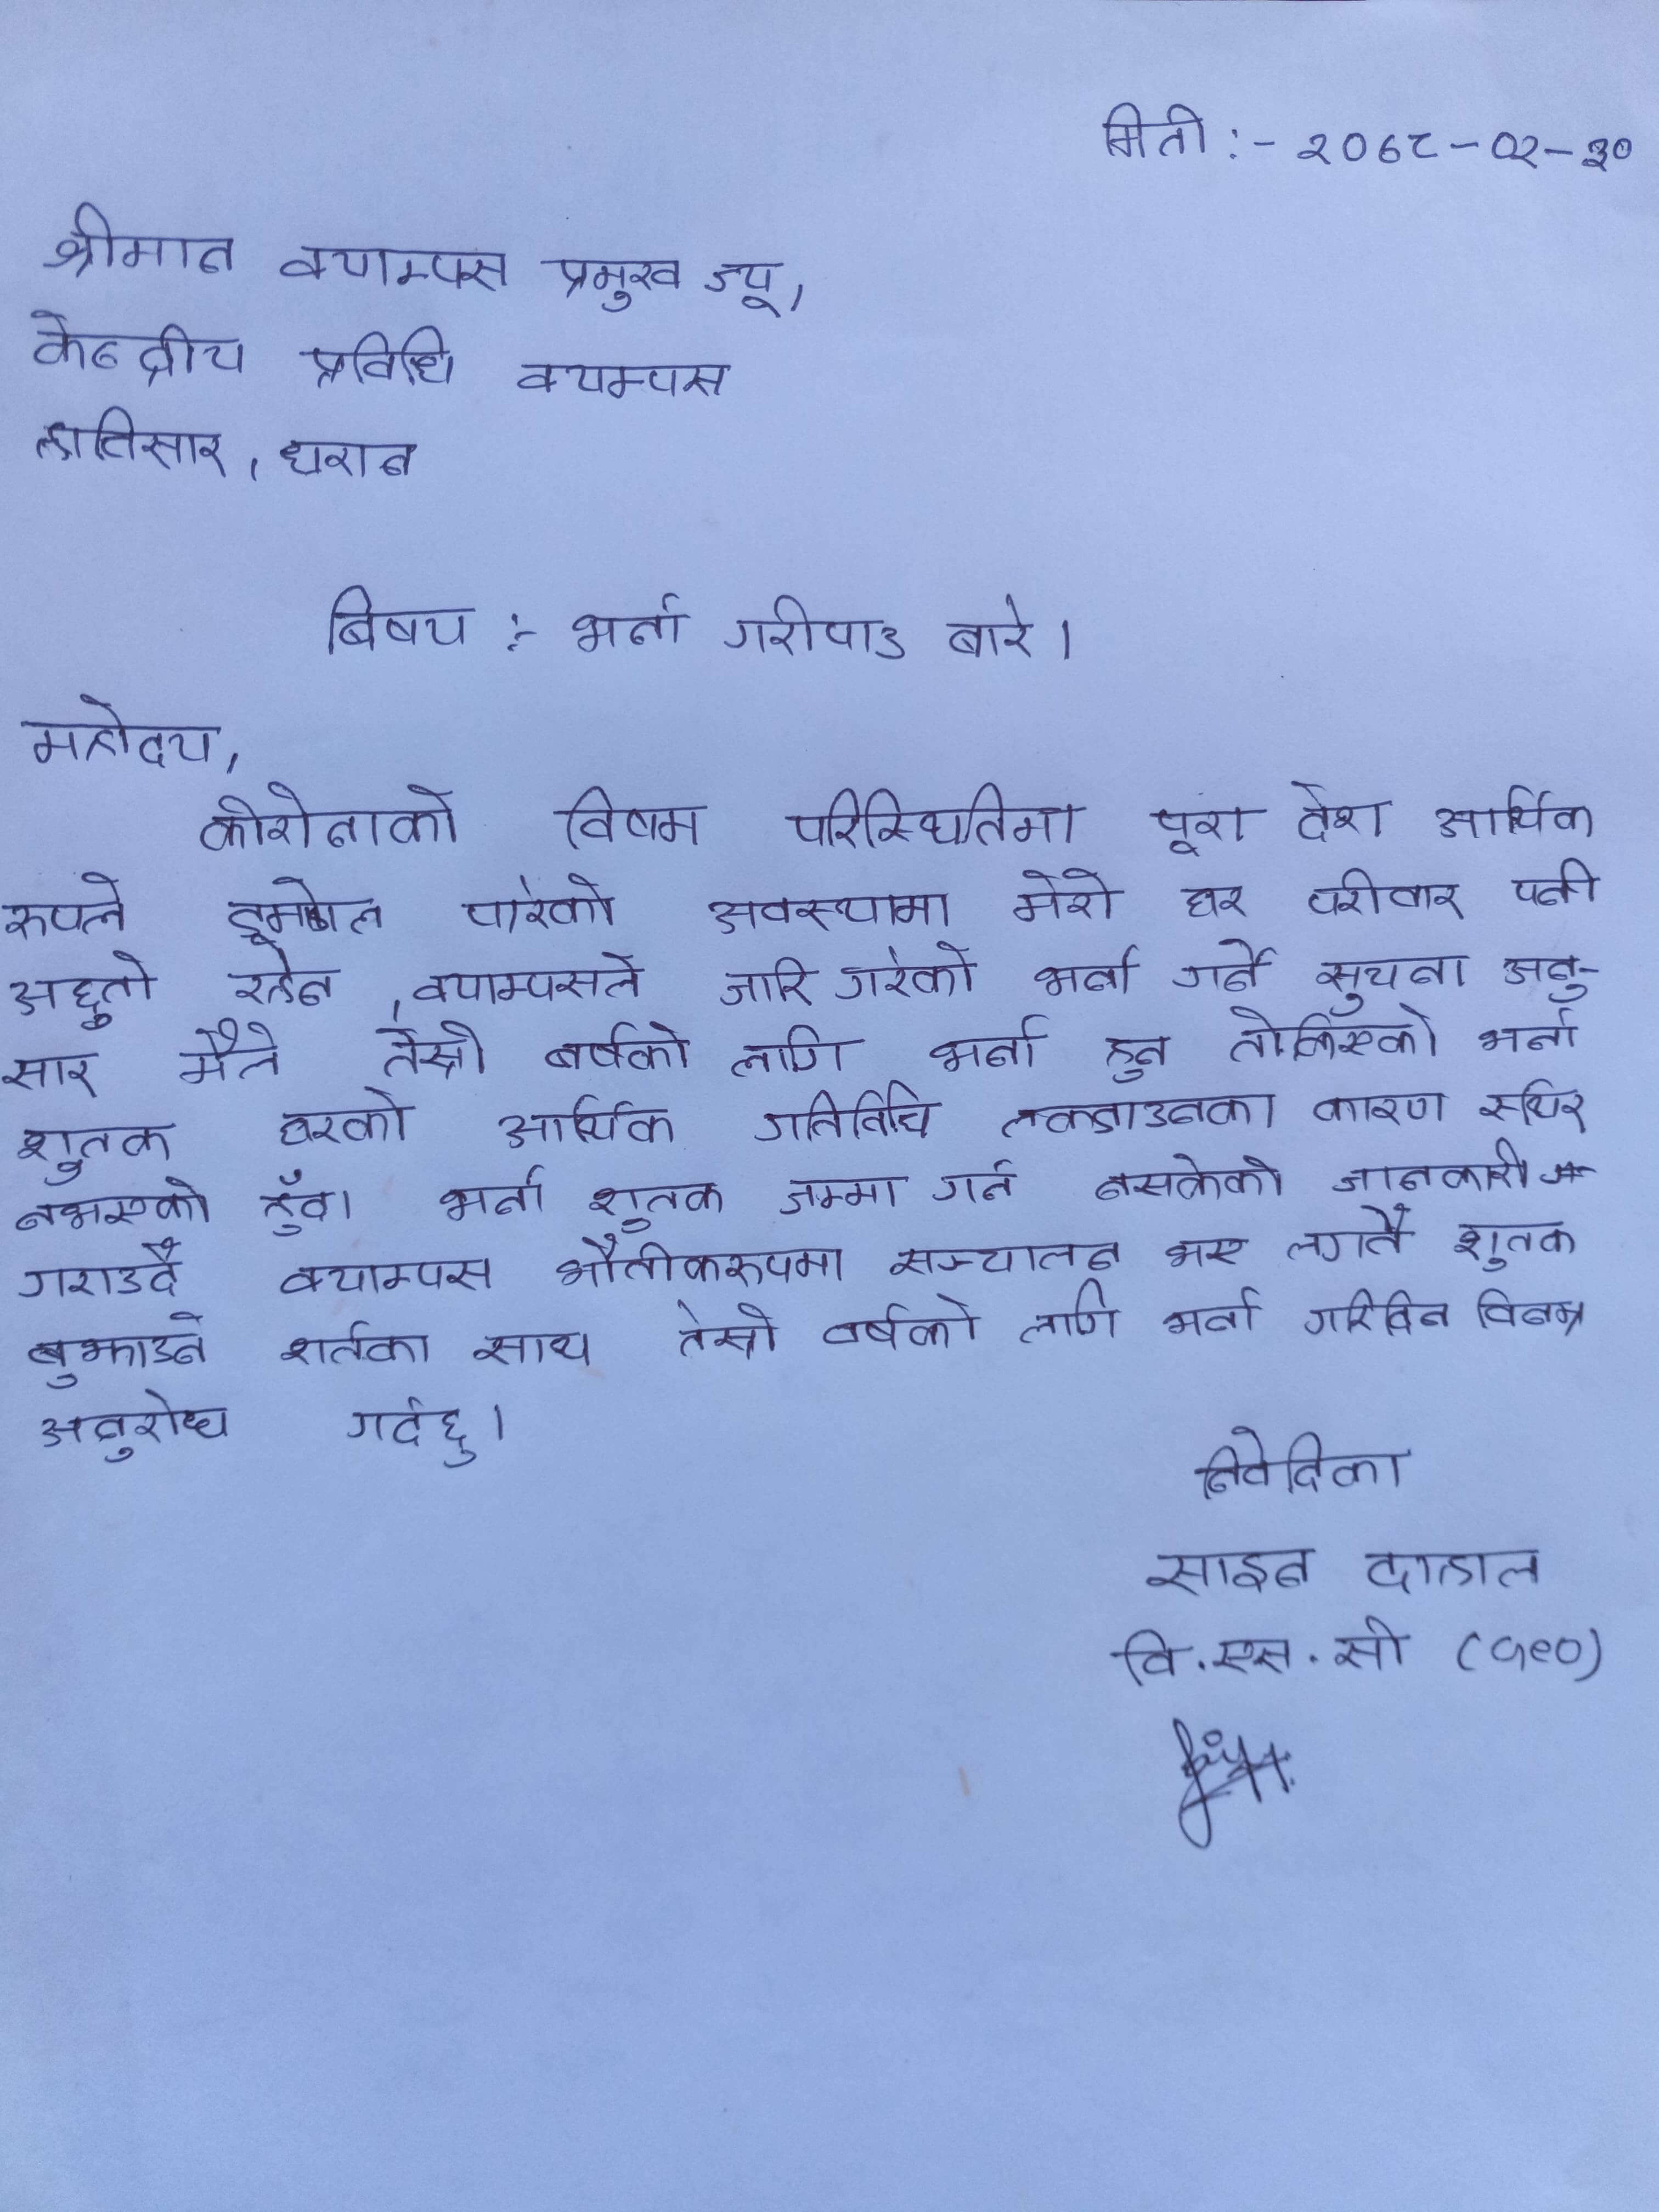 मिती :- २०७८-०२-३०
श्रीमान क्याम्पस प्रमुख ज्यू,
केन्द्रीय प्रविधि क्याम्पस
हात्तिसार, धरान
बिषय :- भर्ना गरीपाउ बारे।
महोदय,
कोरोनाको विषम परिस्थितिमा पूरा देश आर्थिक
रुपले डुमडोल पारेको अवस्थामा मेरो घर परीवार पनी
अछुतो रहेन, क्याम्पसले जारि गरेको भर्ना गर्ने सुचना अनु-
सार मैले तेस्रो बर्षको लागि भर्ना हुन तोकिएको भर्ना
शुल्क घरको आर्थिक गतिविधि लकडाउनका कारण स्थिर
नभएको हुँदा भर्ना शुल्क जम्मा गर्न नसकेको जानकारी
गराउदै क्याम्पस भौतीकरुपमा सञ्चालन भए लगतै शुल्क
बुझाउने शर्तका साथ तेस्रो वर्षको लागि भर्ना गरिदिन विनम्र
अनुरोध गर्दछु।
निवेदिका
साइन दाहाल
वि.एस.सी (Geo)